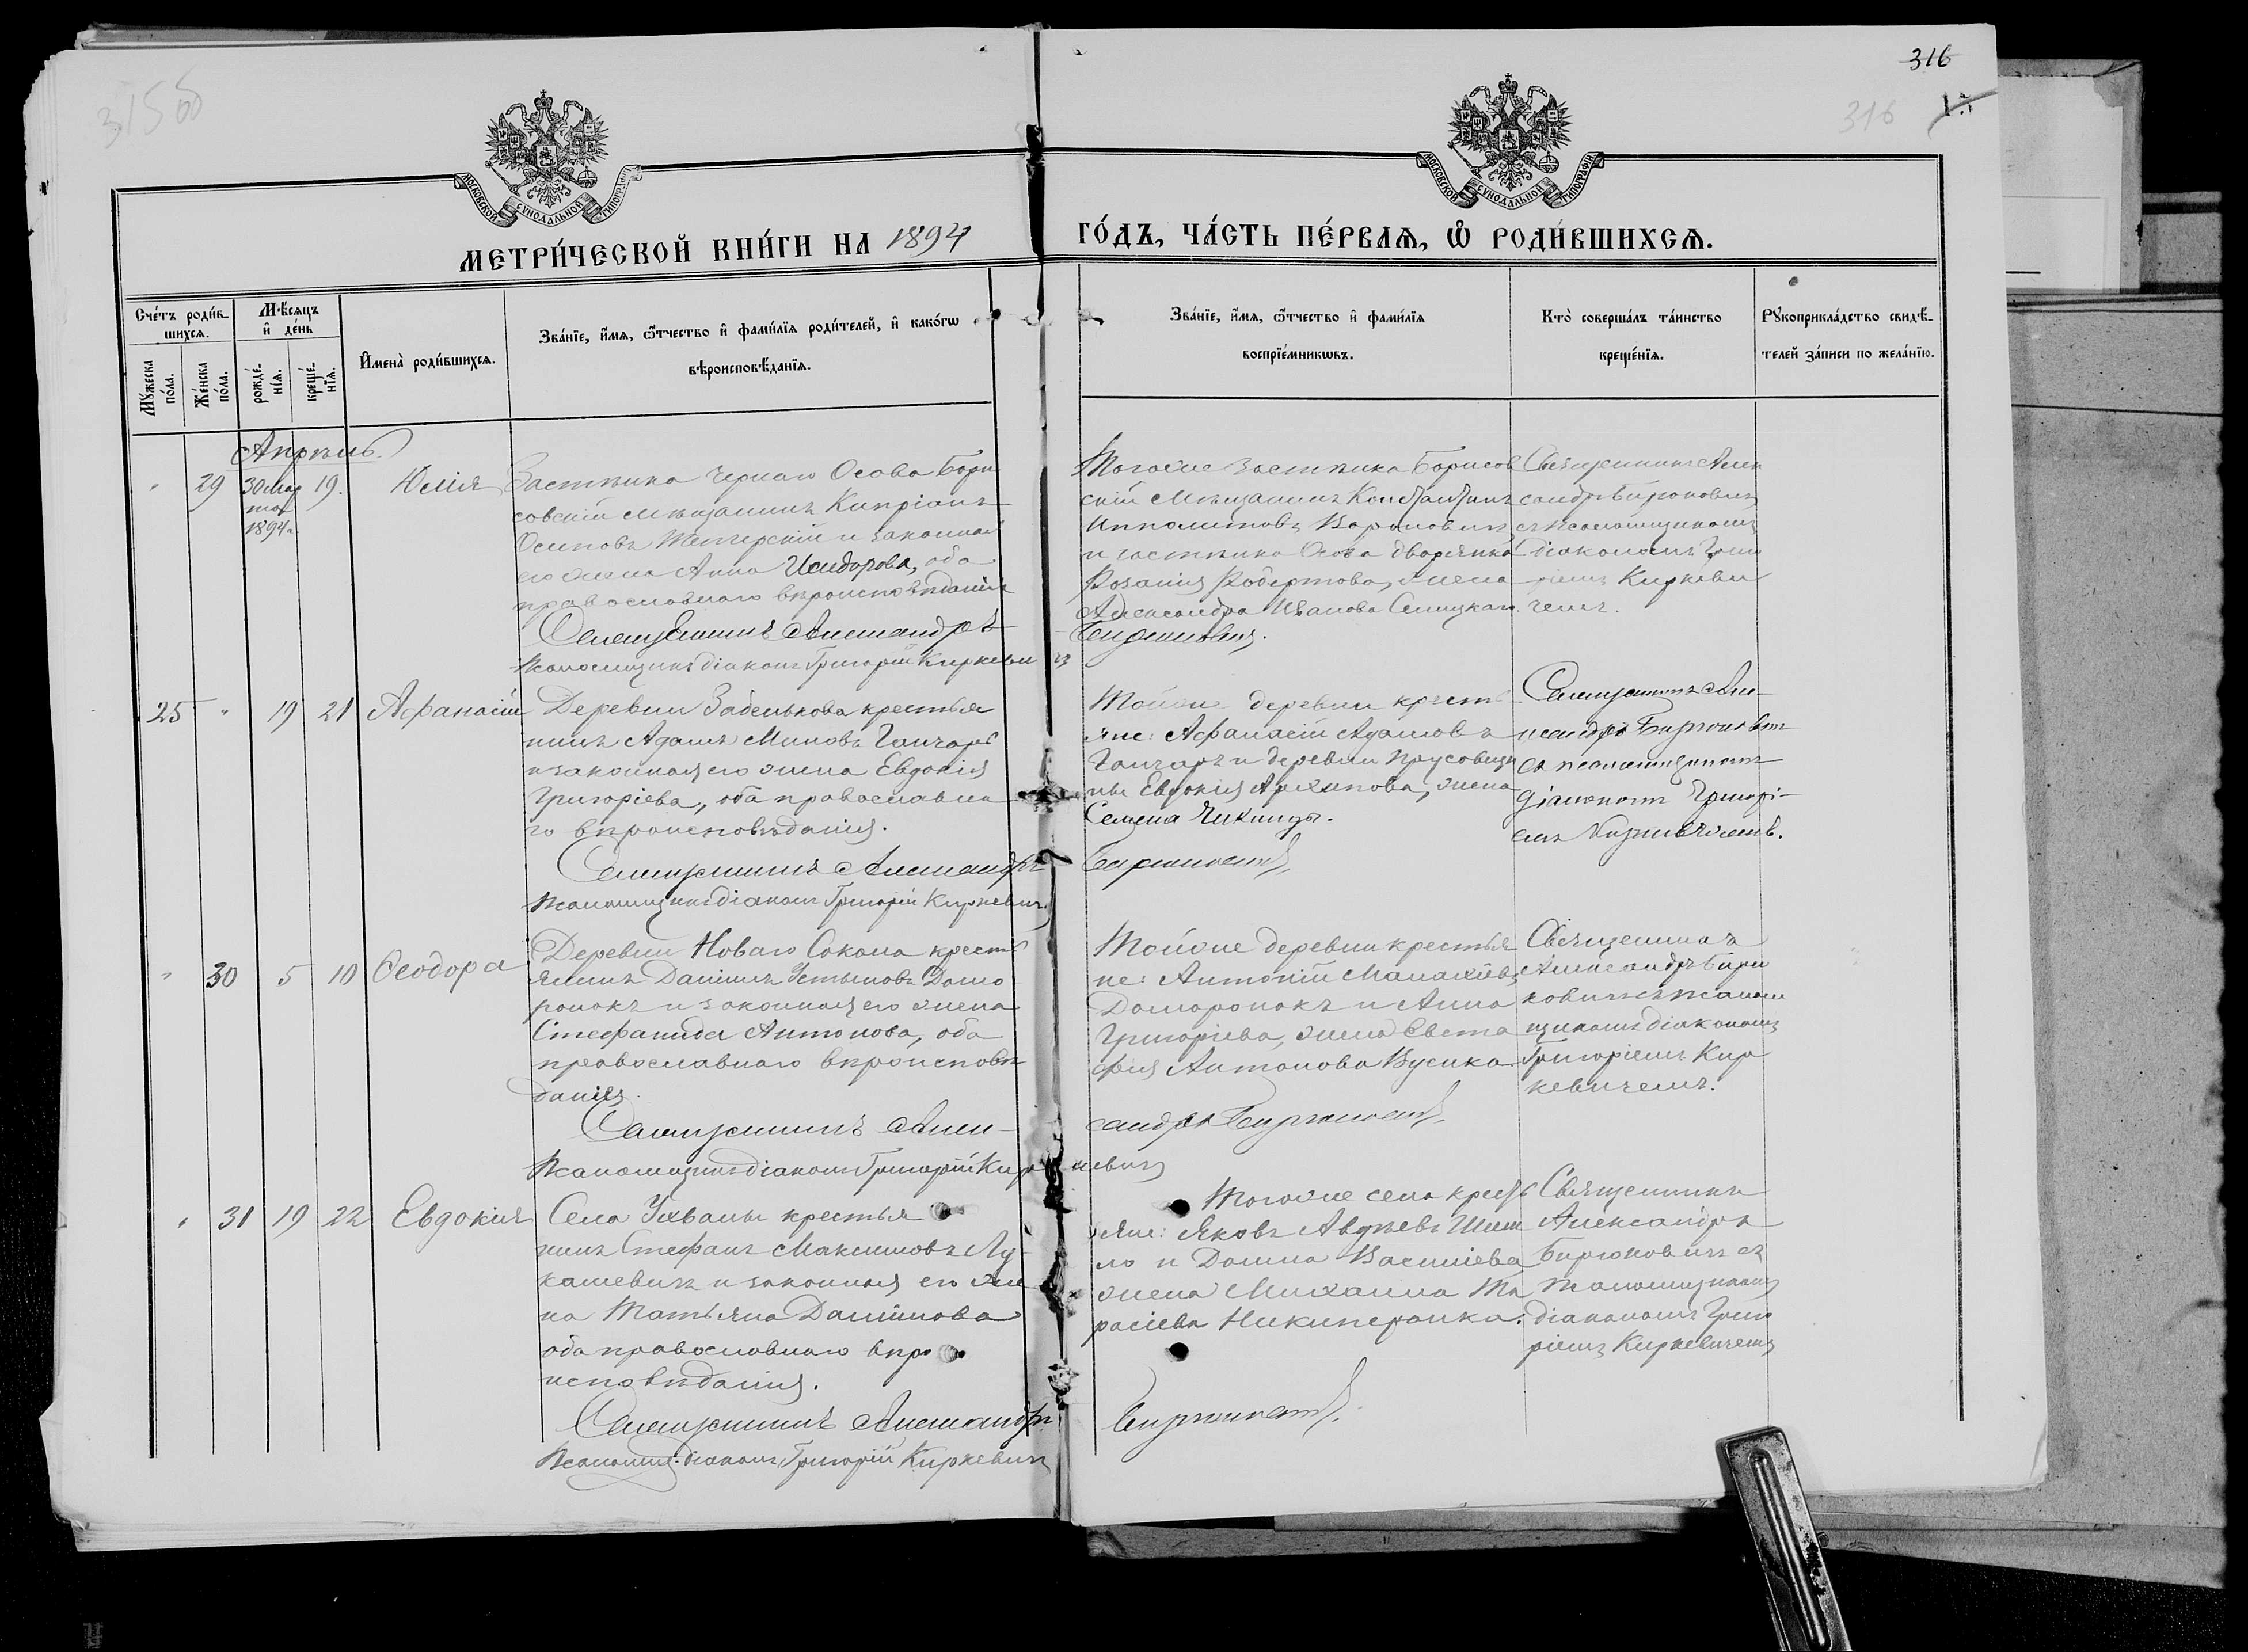 316
315об
316
МОСКОВСКОЙ СѴНОДАЛЬНОЙ ТИПОГРАФІИ
МОСКОВСКОЙ СѴНОДАЛЬНОЙ ТИПОГРАФІИ
МЕТРИ́ЧЕСКОЙ КНИ́ГИ НА 1894
ГО́ДЪ, ЧА́СТЬ ПЕ́РВАѦ, Ѽ РОДИ́ВШИХСѦ.
Сче́тъ роди́в-
шихсѧ.
Мꙋ́жеска
по́ла.
Же́нска
по́ла.
Мѣ́сѧцъ
и҆ де́нь
рожде́-
нїѧ.
креще́-
нїѧ.
И҆мена̀ роди́вшихсѧ.
Зва́нїе, и҆́мѧ, ѻ҆́тчество и҆ фами́лїѧ роди́телей, и҆ како́гѡ
вѣроисповѣ́данїѧ.
Зва́нїе, и҆́мѧ, ѻ҆́тчество и҆ фами́лїѧ
воспрїе́мникѡвъ.
Кто̀ соверша́лъ та́инство
креще́нїѧ.
Рꙋкоприкла́дство свидѣ́-
телей за́писи по жела́нїю.
Апрѣль
" 29 30 Мар 19. Юлія
та
1894 г.
Застѣнка Чернаго Осова Бори
совскій мѣщанинъ Кипріанъ
Осиповъ и законная
его жена Анна Исидорова, оба
православнаго вѣроисповѣданія
Священникъ Александръ
Псаломщикъ діаконъ Григорій Киркевичъ
Тогоже застѣнка Борисов
скій мѣщанинъ Константинъ
Ипполитовъ Вороновичъ
и застѣнка Осова дворянка
Розалія Робертова, жена
Александра Иванова Селицкаго.
Бирюковичъ.
Священникъ Алек
сандръ Бирюковичъ
съ псаломщикомъ
діакономъ Григо
ріемъ Киркеви
чемъ.
25 " 19 21 Афанасій
Деревни Забенькова крестья
нинъ Адамъ Миновъ Ганчаръ
и законная его жена Евдокія
Григоріева, оба православна
го вѣроисповѣданія.
Священникъ Александръ
Псаломщикъ діаконъ Григорій Киркевичъ
Тойже деревни кресть
яне: Афанасій Адамовъ
Ганчаръ и деревни Прусовищи
ны Евдокія Архипова, жена
Семена Чикинды.
Бирюковичъ
Священникъ Але
ксандръ Бирюковичъ
съ псаломщикомъ
діакономъ Григорі-
емъ Киркевичемъ.
" 30 5 10 Ѳеодора
Деревни Новаго Сокола кресть
янинъ Даніилъ Устиновъ Домо
ронокъ и законная его жена
Стефанида Антонова, оба
православнаго вѣроисповѣ
данія.
Священникъ Алек-
Псаломщикъ діаконъ Григорій Кир
Тойже деревни крестья
не: Антоній Малахіевъ
Доморонокъ и Анна
Григоріева, жена Евста
фія Антонова Бусика
сандръ Бирюковичъ
кевичъ
Священникъ
Александръ Бирю
ковичъ съ псалом
щикомъ діакономъ
Григоріемъ Кир
кевичемъ.
" 31 19 22 Евдокія
Села Ухвалы крестья
нинъ Стефанъ Максимовъ Лу-
кашевичъ и законная его же
на Татьяна Даніилова
оба православнаго вѣро
исповѣданія.
Священникъ Александръ
Псаломщ. діаконъ Григорій Киркевичъ
Тогоже села кресть
яне: Яковъ Авдѣевъ Шем
ло и Домна Василіева
жена Михаила Та
расіева Никиперонка.
Бирюковичъ
Священникъ
Александръ
Бирюковичъ съ
псаломщикомъ
діакономъ Григо
ріемъ Киркевичемъ